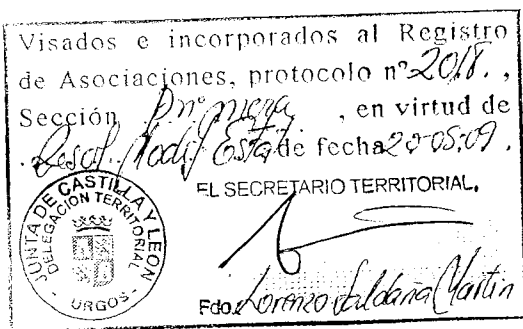 Visados e incorporados al Registro
de Asociaciones, protocolo nº 2018. ,
Sección Primera , en virtud de
. Resol. Modif Estat de fecha 20-05-09 .
EL SECRETARIO TERRITORIAL,
JUNTA DE CASTILLA Y LEON
DELEGACION TERRITORIAL
BURGOS
Fdo. Lorenzo Saldaña Martin